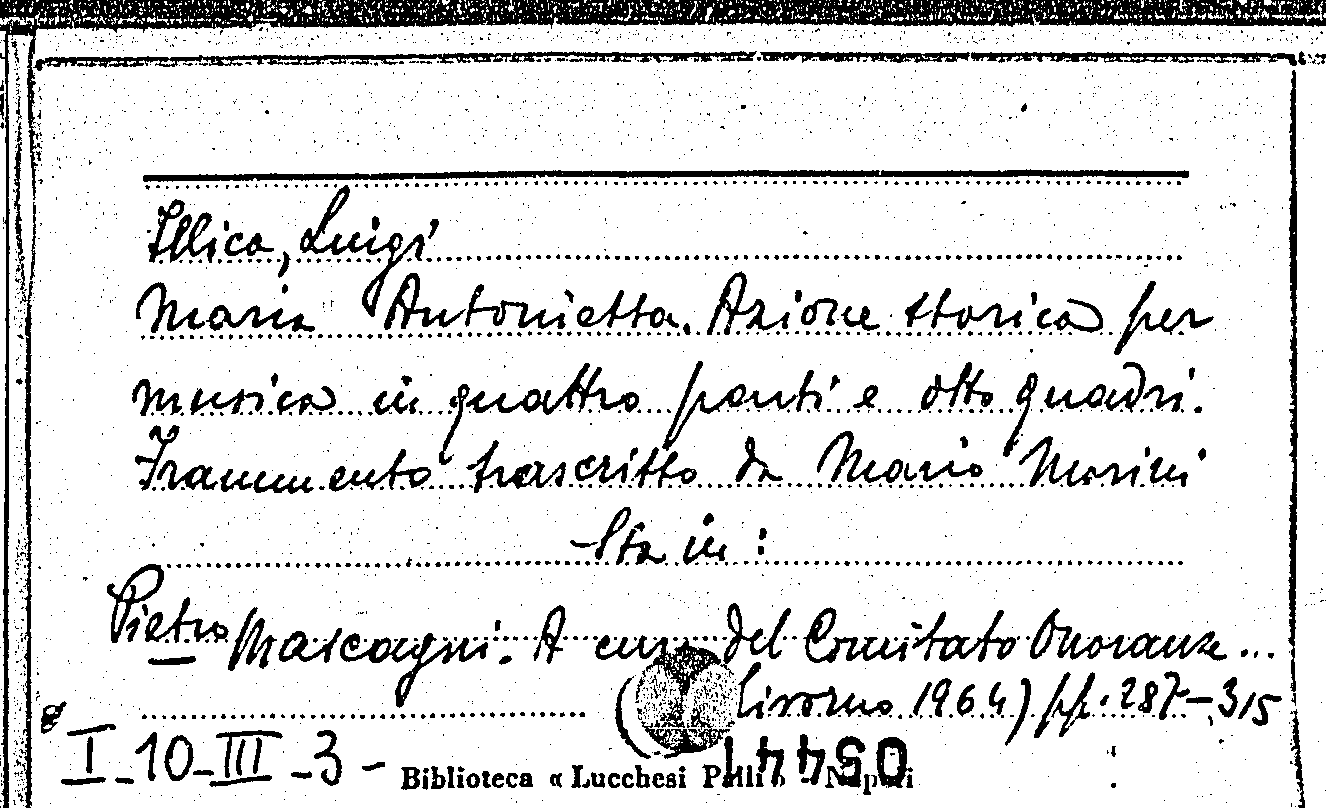 Illica, Luigi
Maria Antonietta. Azione storica per
musica in quattro parti e otto quadri.
Frammento trascritto da Mario Morini
Sta in:
Pietro Mascagni. A cura del Comitato Onoranze...
(Livorno 1964) pp. 287-315
I-10-III-3-
Biblioteca « Lucchesi Palli » Napoli
05441